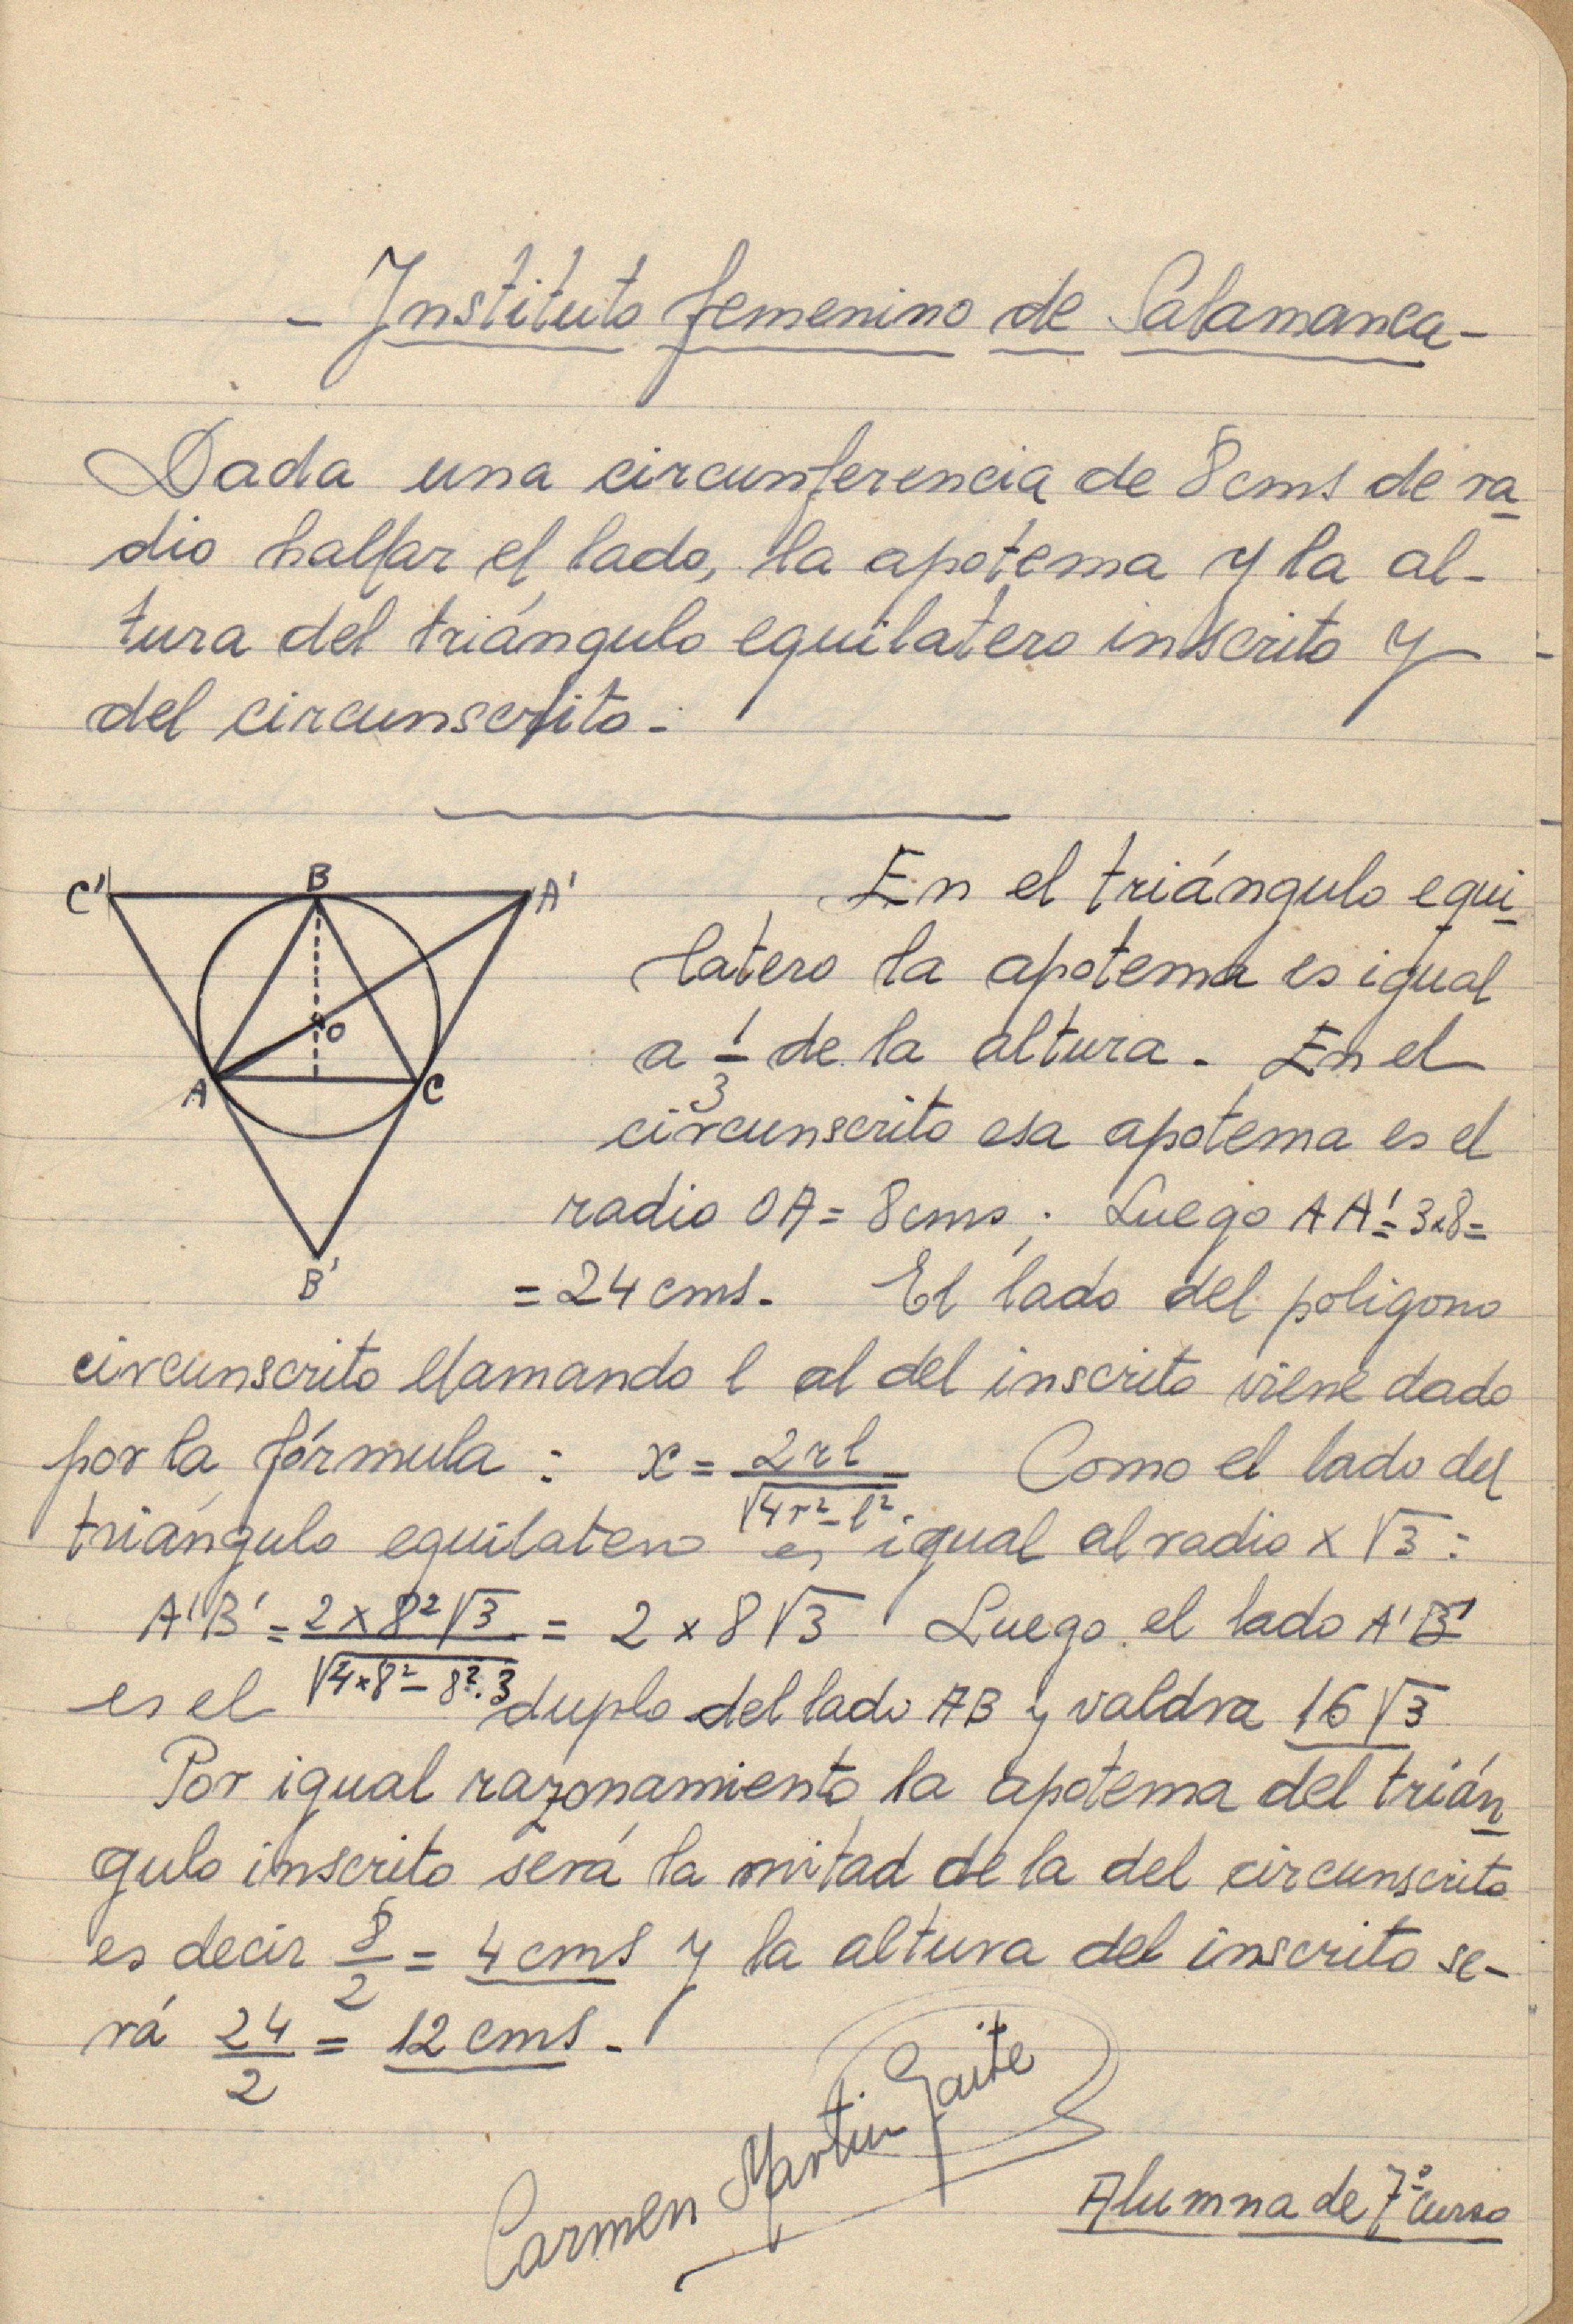 - Instituto femenino de Salamanca -
Dada una circunferencia de 8 cms de ra
dio hallar el lado, la apotema y la al-
tura del triángulo equilatero inscrito y
del circunscrito.
C' B A'
O
A C
B'
En el triángulo equi
latero la apotema es igual
a 1/3 de la altura. En el
circunscrito esa apotema es el
radio OA = 8 cms; Luego AA' = 3x8 =
= 24 cms. El lado del poligono
circunscrito llamando l al del inscrito viene dado
por la fórmula : x = 2rl / √4r² - l² Como el lado del
triángulo equilatero es igual al radio x √3 :
A'B' = 2 x 8² √3 / √4x8² - 8².3 = 2 x 8 √3 Luego el lado A'B'
es el duplo del lado AB y valdra 16 √3
Por igual razonamiento la apotema del trián
gulo inscrito será la mitad de la del circunscrito
es decir 8/2 = 4 cms y la altura del inscrito se-
rá 24/2 = 12 cms.
Carmen Martin Gaite
Alumna de 7º curso